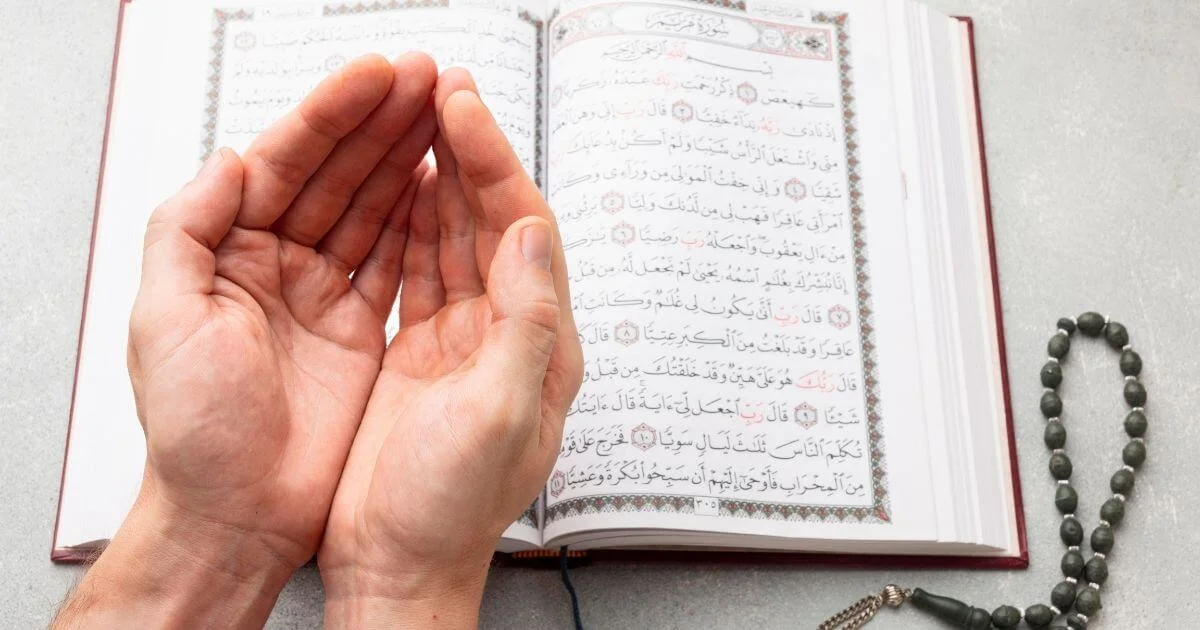 سُورَةُ مَرْيَمَ
بِسْمِ ٱللَّهِ ٱلرَّحْمَٰنِ ٱلرَّحِيمِ
كٓهيعٓصٓ ١ ذِكْرُ رَحْمَتِ رَبِّكَ عَبْدَهُۥ زَكَرِيَّآ
إِذْ نَادَىٰ رَبَّهُۥ نِدَآءً خَفِيًّا ٣ قَالَ رَبِّ إِنِّي وَهَنَ
مِنِّي وَٱشْتَعَلَ ٱلرَّأْسُ شَيْبًا وَلَمْ أَكُنۢ بِدُعَآئِكَ
شَقِيًّا ٤ وَإِنِّي خِفْتُ ٱلْمَوَٰلِيَ مِن وَرَآءِي وَكَانَتِ
ٱمْرَأَتِي عَاقِرًا فَهَبْ لِي مِن لَّدُنكَ وَلِيًّا ٥ يَرِثُنِي
مِنْ ءَالِ يَعْقُوبَ وَٱجْعَلْهُ رَبِّ رَضِيًّا ٦
إِنَّا نُبَشِّرُكَ بِغُلَٰمٍ ٱسْمُهُۥ يَحْيَىٰ لَمْ نَجْعَل لَّهُۥ مِن قَبْلُ
٧ قَالَ رَبِّ أَنَّىٰ يَكُونُ لِي غُلَٰمٌ وَكَانَتِ
عَاقِرًا وَقَدْ بَلَغْتُ مِنَ ٱلْكِبَرِ عِتِيًّا ٨ قَالَ
قَالَ رَبُّكَ هُوَ عَلَيَّ هَيِّنٌ وَقَدْ خَلَقْتُكَ مِن قَبْلُ
شَيْـًٔا ٩ قَالَ رَبِّ ٱجْعَل لِّيٓ ءَايَةً قَالَ ءَايَتُكَ
تُكَلِّمَ ٱلنَّاسَ ثَلَٰثَ لَيَالٍ سَوِيًّا ١٠ فَخَرَجَ عَلَىٰ قَوْمِهِۦ
مِنَ ٱلْمِحْرَابِ فَأَوْحَىٰٓ إِلَيْهِمْ أَن سَبِّحُوا۟ بُكْرَةً وَعَشِيًّا ١١
٣٠٥
يَٰيَحْيَىٰ خُذِ ٱلْكِتَٰبَ بِقُوَّةٍ وَءَاتَيْنَٰهُ ٱلْحُكْمَ صَبِيًّا ١٢
وَحَنَانًا مِّن لَّدُنَّا